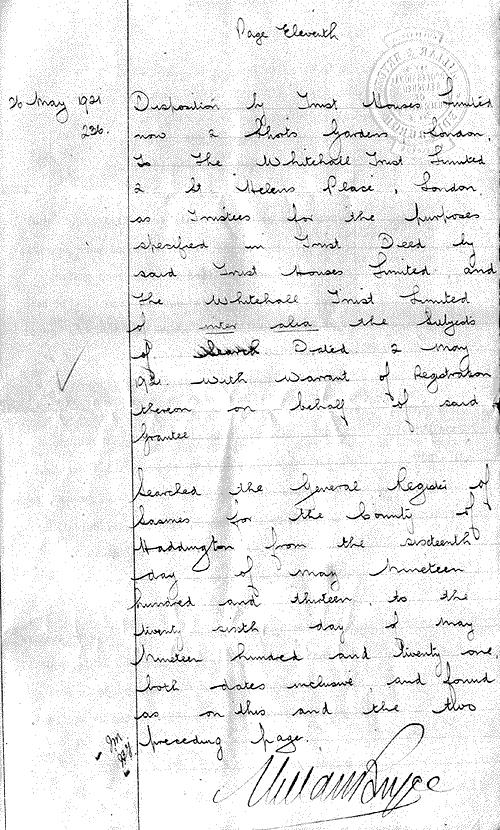 Page Eleventh
26 May 1921
236.
Disposition by Trust Houses Limited
now 2 Shorts Gardens London,
to The Whitehall Trust Limited
2 St. Helens Place, London
as Trustees for the purposes
specified in Trust Deed by
said Trust Houses Limited and
The Whitehall Trust Limited
of inter alia the subjects
of Search Dated 2 May
1921 with Warrant of Registration
thereon on behalf of said
Grantee
Searched the General Register of
Sasines for the County of
Haddington from the sixteenth
day of May Nineteen
hundred and thirteen to the
twenty sixth day of May
Nineteen hundred and Twenty one,
both dates inclusive, and found
as on this and the two
preceding page.